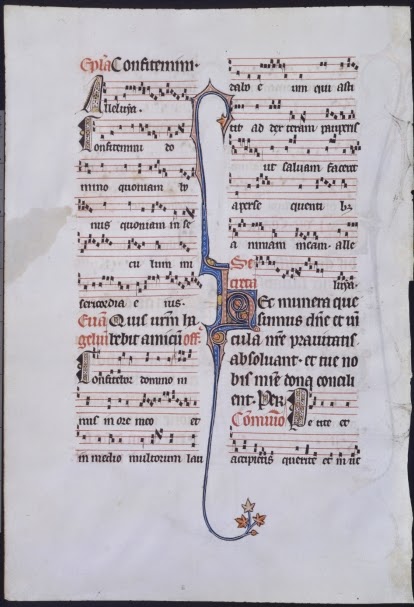 Ep̃la Confitemini.
Alleluya.
Confitemini do
mino quoniam bo
nus quoniam in se
cu lum mi
sericordia e ius.
Euã Quis ur̃m ha
gelium debit amicũ off.
Confitebor domino ni
mis in ore meo et
in medio multorum lau
dabo e um qui asti
tit ad dexteram pauperis
ut saluam faceret
a perse quenti bz
a nimam meam. alle
Se luya.
creta
Et munera que
sumus dñe et uĩ
cula nr̃e prauitatis
absoluant. et tue no
bis mĩe dona concili
ent. Per
Cõmunio Pe tite et
accipietis querite et in ue